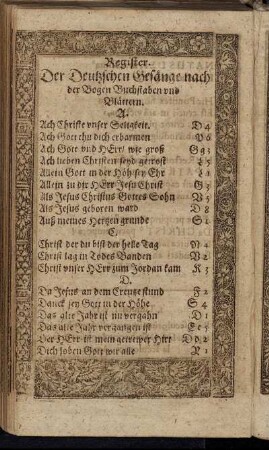 Register.
Der Deutzschen Gesänge nach
der Bogen Buchstaben vnd
Blättern.
A.
Ach Christe vnser Seligkeit. D 4
Ach Gott thu dich erbarmen V 6
Ach Gott vnd HErr/ wie groß G g 3
Ach lieben Christen seyd getrost
Allein Gott in der Höh sey Ehr
Allein zu dir HErr Jesu Christ G 3
Als Jesus Christus Gottes Sohn V 5
Als Jesus geboren ward D 8
Auß meines Hertzen grunde S 1
C.
Christ der du bist der helle Tag N 4
Christ lag in Todes Banden N 2
Christ vnser HErr zum Jordan kam K 3
D.
Da Jesus an dem Creutze stund F 2
Danck sey Gott in der Höhe S 4
Das alte Jahr ist nu vergahn D 1
Das alte Jahr vergangen ist E e 5
Der HErr ist mein getrewer Hirt D d 2
Dich loben Gott wir alle N 1